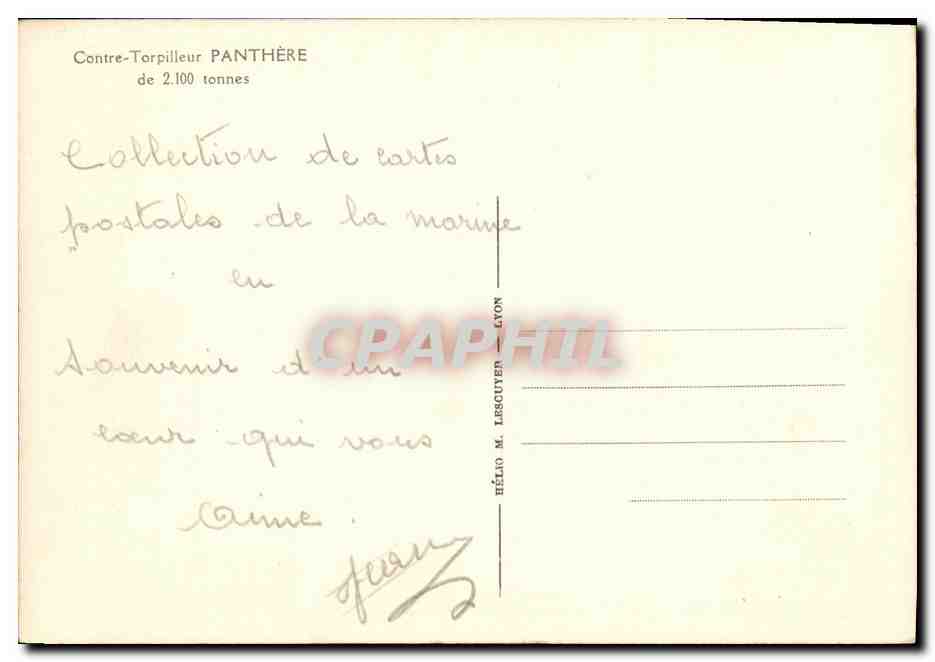 Contre-Torpilleur PANTHÈRE
de 2.100 tonnes
Collection de cartes
postales de la marine
en
Souvenir d'un
cœur qui vous
Aime.
Jean
HÉLIO M. LESCUYER — LYON
CPAPHIL